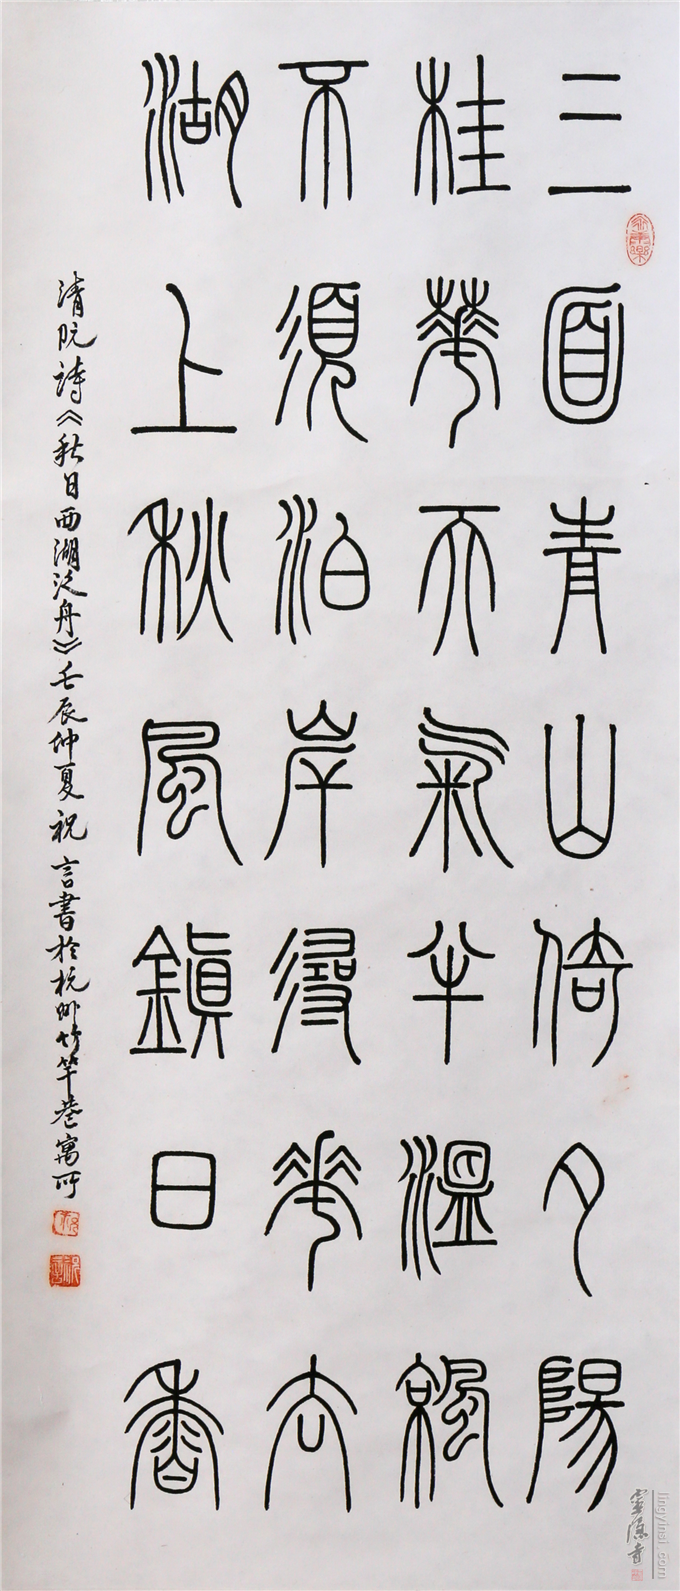 三面青山倚夕陽
桂華天氣半溫涼
不須泊岸尋花去
湖上秋風鎮日香
清阮詩《秋日西湖泛舟》壬辰仲夏祝言書於杭州竹竿巷寓所
靈隱寺
lingyinsi.com